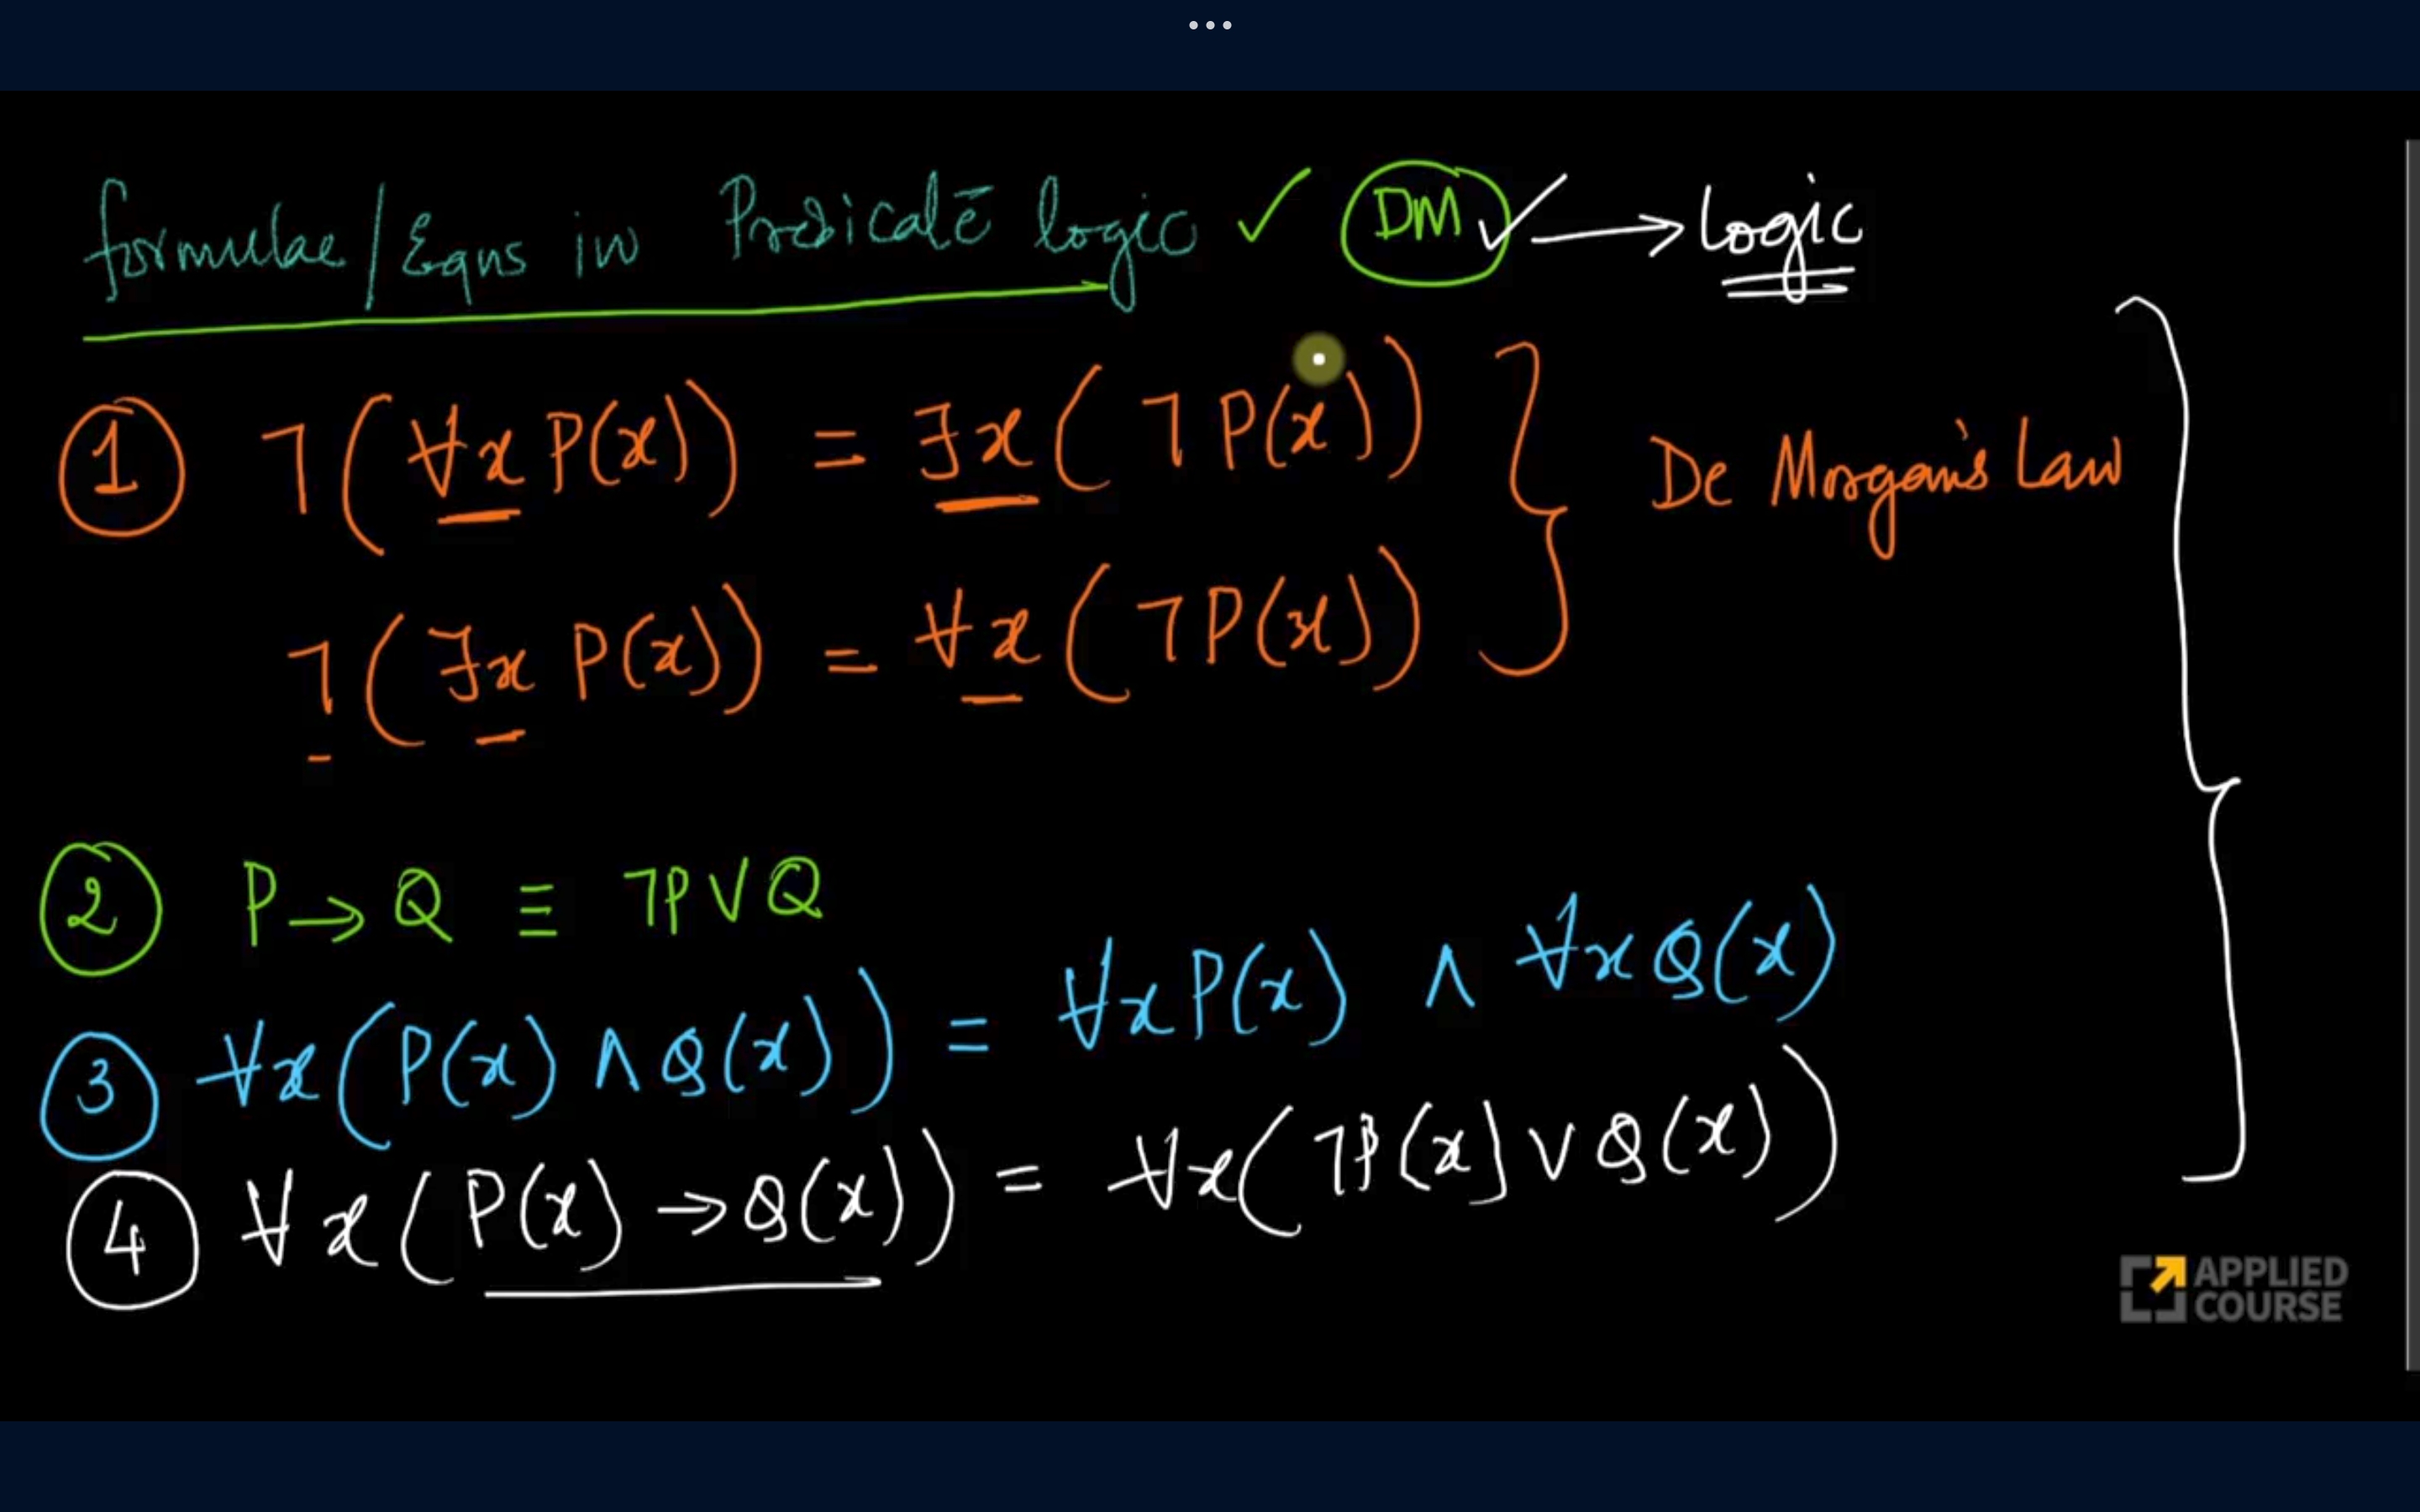 formulae/Eqns in Predicate logic ✓ DM ✓ → logic
1 ¬(∀x P(x)) = ∃x(¬P(x))
De Morgan's Law
¬(∃x P(x)) = ∀x(¬P(x))
2 P → Q ≡ ¬P ∨ Q
3 ∀x(P(x) ∧ Q(x)) = ∀x P(x) ∧ ∀x Q(x)
4 ∀x(P(x) → Q(x)) = ∀x(¬P(x) ∨ Q(x))
APPLIED
COURSE